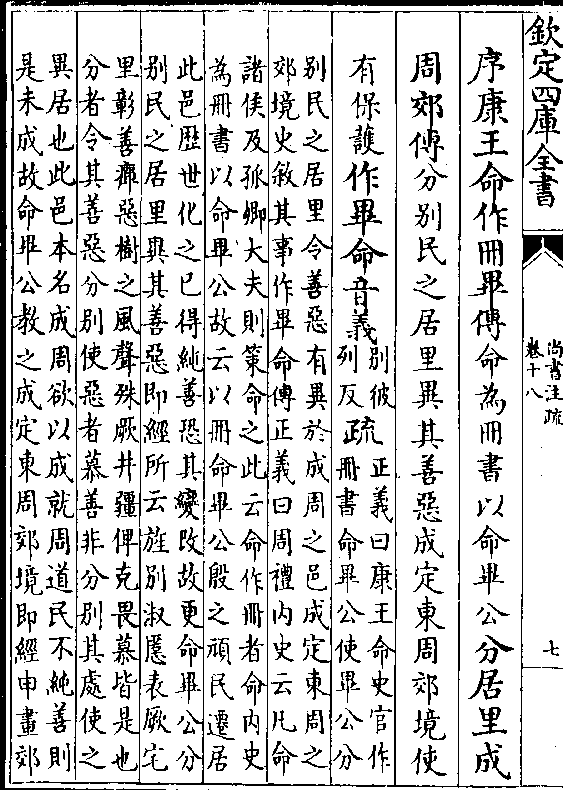 欽定四庫全書
尚書注疏
卷十八
七
序康王命作冊畢傳命為冊書以命畢公分居里成
周郊傳分別民之居里異其善惡成定東周郊境使
有保護作畢命音義別彼列反疏正義曰康王命史官作
冊書命畢公使畢公分
別民之居里令善惡有異於成周之邑成定東周之
郊境史敘其事作畢命傳正義曰周禮内史云凡命
諸侯及孤卿大夫則策命之此云命作冊者命内史
為冊書以命畢公故云以冊命畢公殷之頑民遷居
此邑歴世化之已得純善恐其變改故更命畢公分
別民之居里異其善惡即經所云旌別淑慝表厥宅
里彰善癉惡樹之風聲殊厥井疆俾克畏慕皆是也
分者令其善惡分別使惡者慕善非分別其處使之
異居也此邑本名成周欲以成就周道民不純善則
是未成故命畢公教之成定東周郊境即經申畫郊